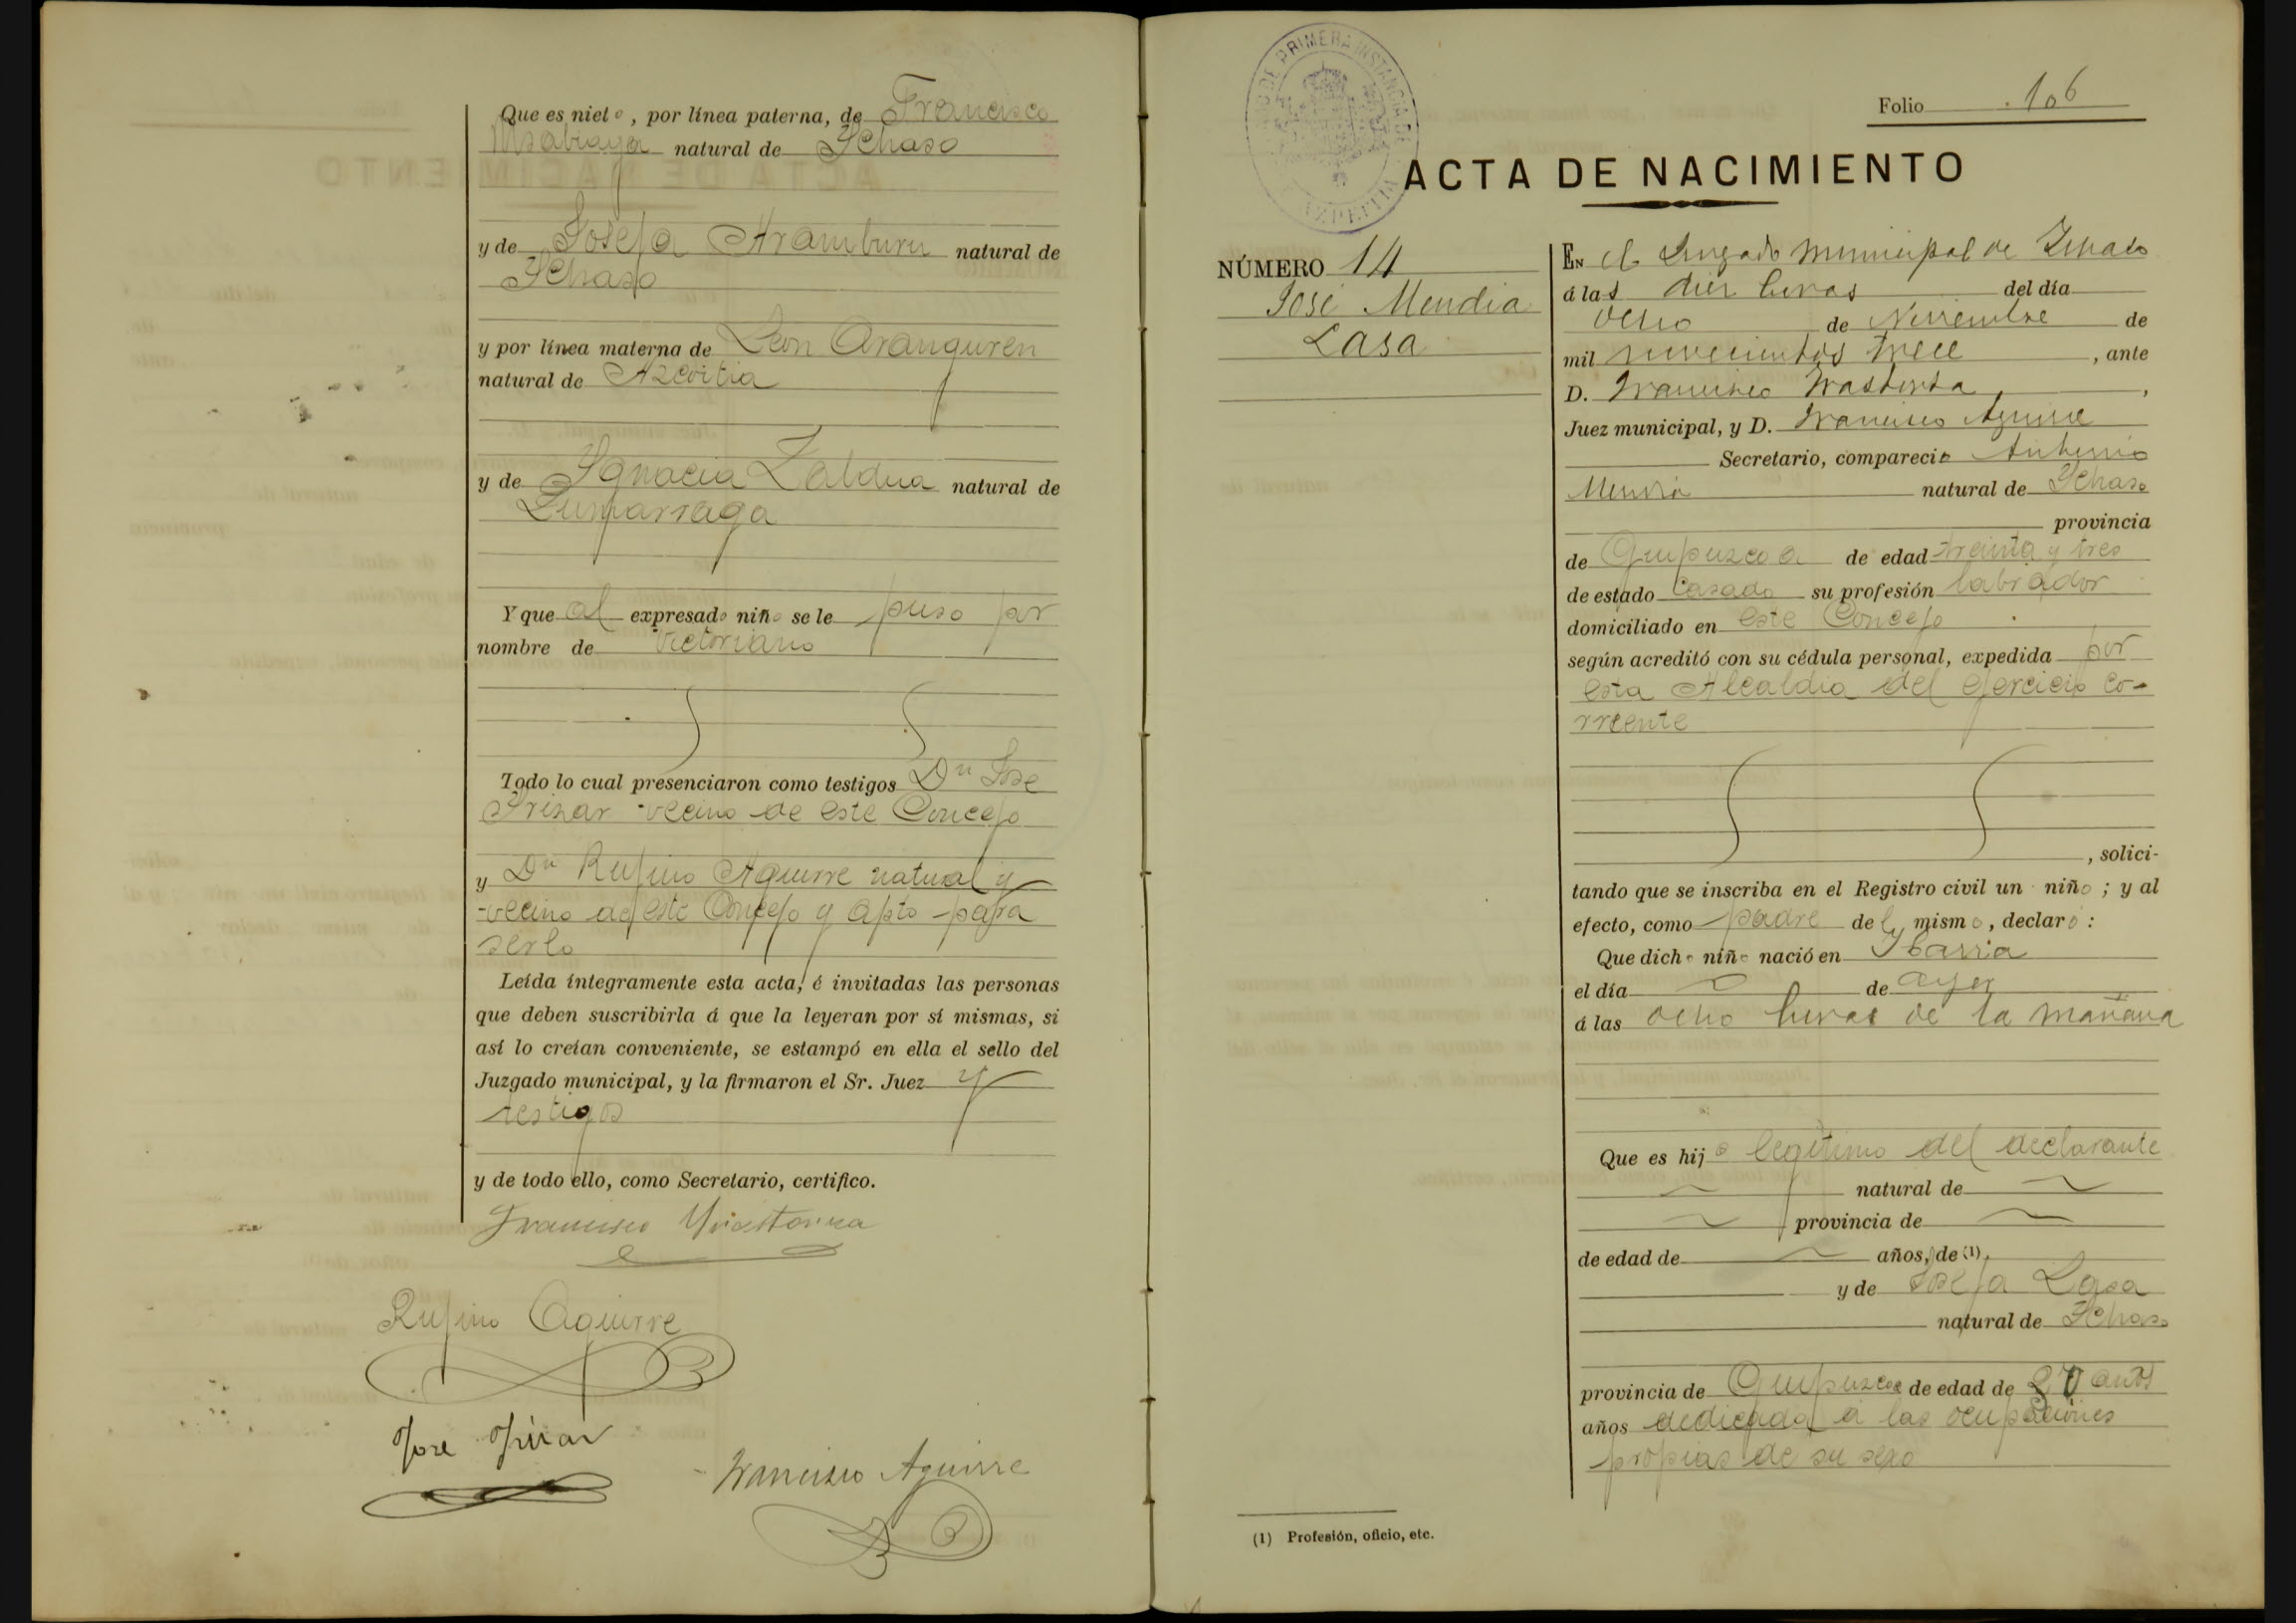 Que es nieto, por línea paterna, de Francisco
natural de Ichaso
y de Josefa Aramburu natural de
Ichaso
y por línea materna de Leon Aranguren
natural de Azcoitia
y de Ignacia Zaldua natural de
Zumarraga
Y que al expresado niño se le puso por
nombre de Victoriano
Todo lo cual presenciaron como testigos Dn Jose
Irizar vecino de este Concejo
y Dn Rufino Aguirre natural y
vecino de este Concejo y apto para
serlo
Leída íntegramente esta acta, é invitadas las personas
que deben suscribirla á que la leyeran por sí mismas, si
así lo creían conveniente, se estampó en ella el sello del
Juzgado municipal, y la firmaron el Sr. Juez y
testigos
y de todo ello, como Secretario, certifico.
Francisco
Rufino Aguirre
Jose Irizar
Francisco Aguirre
JUZGADO DE PRIMERA INSTANCIA DE AZPEITIA
Folio 106
ACTA DE NACIMIENTO
NÚMERO 14
José Mendia
Lasa
EN el Juzgado municipal de Ichaso
á las diez horas del día
ocho de Noviembre de
mil novecientos trece, ante
D. Francisco
Juez municipal, y D. Francisco Aguirre
Secretario, compareció Antonio
Mendia natural de Ichaso
provincia
de Guipuzcoa de edad treinta y tres
de estado casado su profesión labrador
domiciliado en este Concejo
según acreditó con su cédula personal, expedida por
esta Alcaldia del ejercicio co-
rriente
, solici-
tando que se inscriba en el Registro civil un niño; y al
efecto, como padre del mismo, declaró:
Que dicho niño nació en Ybarria
el día de ayer
á las ocho horas de la mañana
Que es hijo legitimo del declarante
natural de
provincia de
de edad de años, de (1)
y de Josefa Lasa
natural de Ichaso
provincia de Guipuzcoa de edad de años
años dedicada á las ocupaciones
propias de su sexo
(1) Profesión, oficio, etc.